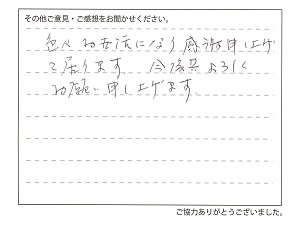 その他ご意見・ご感想をお聞かせください。
色々お世話になり感謝申し上げ
て居ります 今後共よろしく
お願い申し上げます
ご協力ありがとうございました。